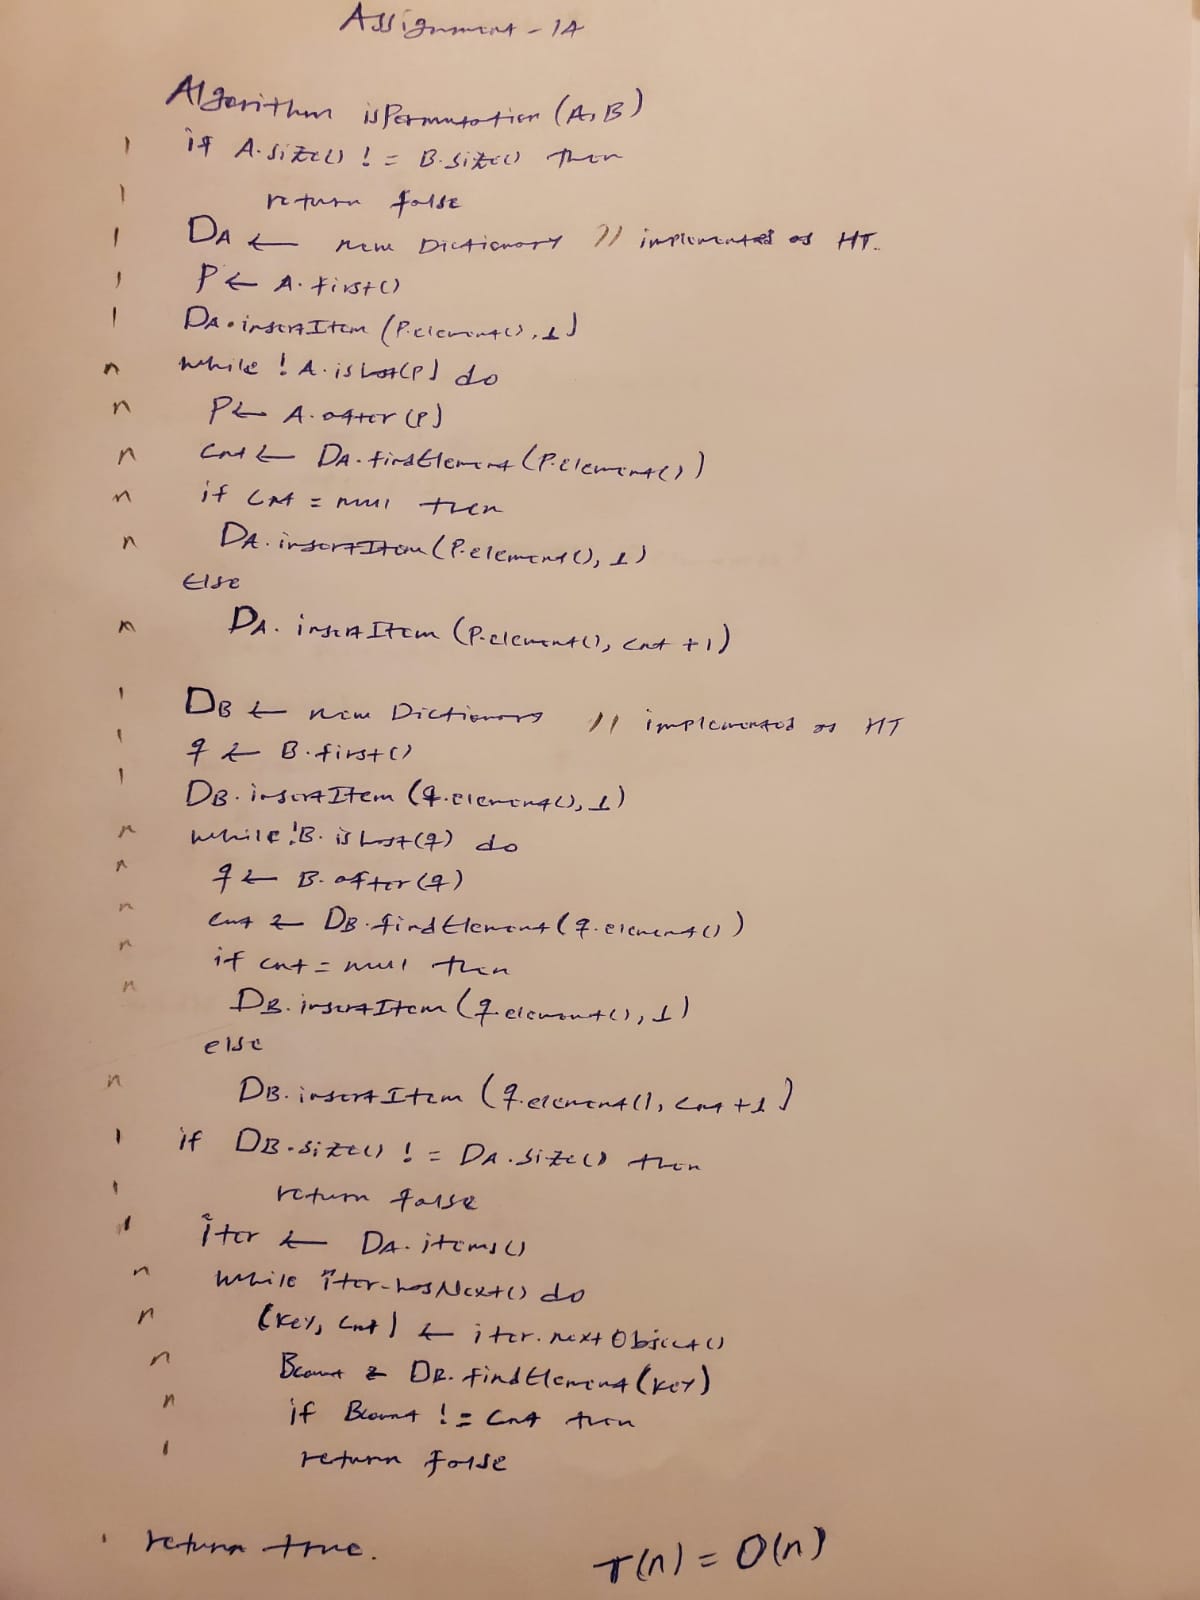 Assignment - 1A
Algorithm isPermutation (A, B)
1 if A.size() != B.size() then
1 return false
1 DA ← new Dictionary // implemented as HT.
1 P ← A.first()
1 DA.insertItem (P.element(), 1)
n while ! A.isLast(P) do
n P ← A.after (P)
n cnt ← DA.findElement (P.element())
n if cnt = null then
n DA.insertItem (P.element(), 1)
Else
n DA.insertItem (P.element(), cnt +1)
1 DB ← new Dictionary // implemented as HT
1 q ← B.first()
1 DB.insertItem (q.element(), 1)
n while !B.isLast(q) do
n q ← B.after(q)
n cnt ← DB.findElement (q.element())
n if cnt = null then
n DB.insertItem (q.element(), 1)
else
n DB.insertItem (q.element(), cnt +1)
1 if DB.size() != DA.size() then
1 return false
1 iter ← DA.items()
n while iter.hasNext() do
n (key, cnt) ← iter.nextObject()
n Bcount ← DB.findElement (key)
n if Bcount != cnt then
1 return false
1 return true.
T(n) = O(n)